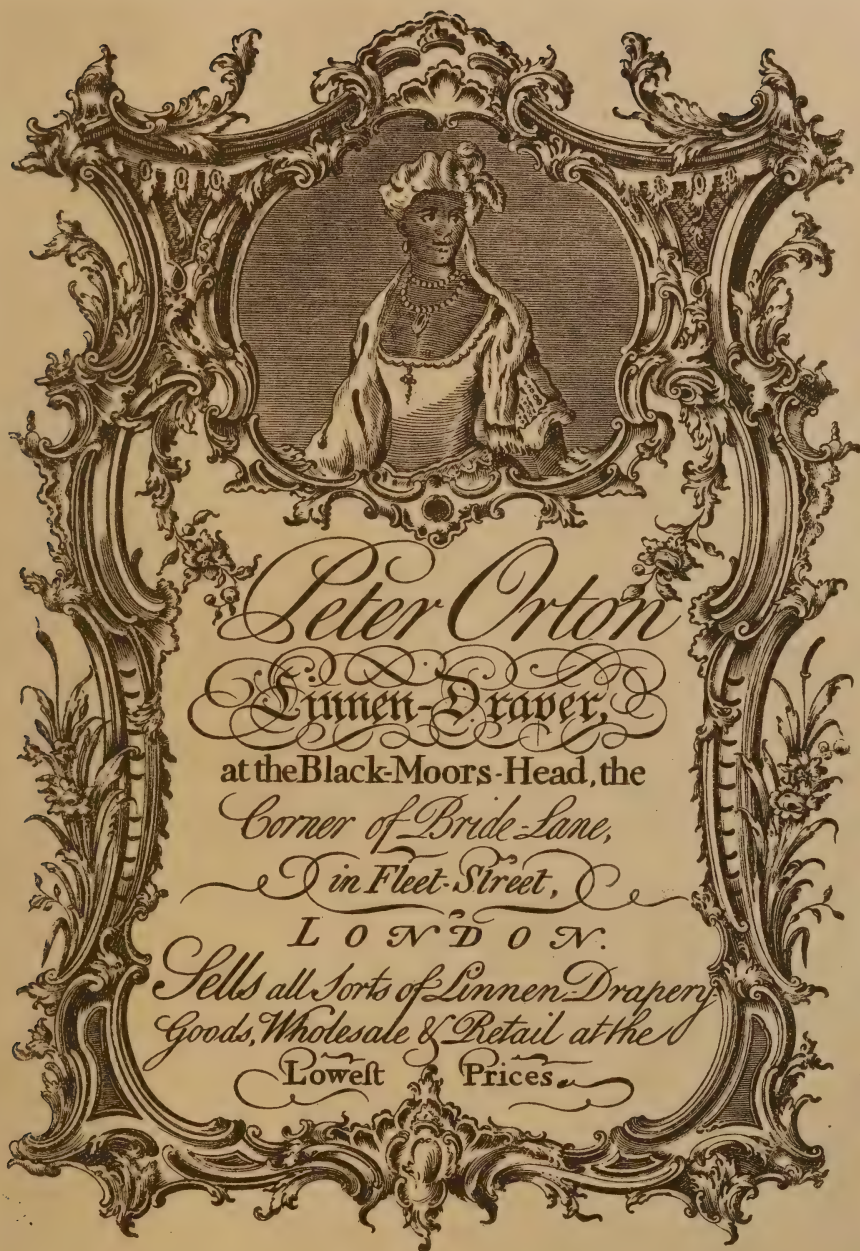 Peter Orton
Linnen-Draper,
at the Black-Moors-Head, the
Corner of Bride-Lane,
in Fleet-Street,
LONDON.
Sells all Sorts of Linnen-Drapery
Goods, Wholesale & Retail at the
Loweſt Prices.